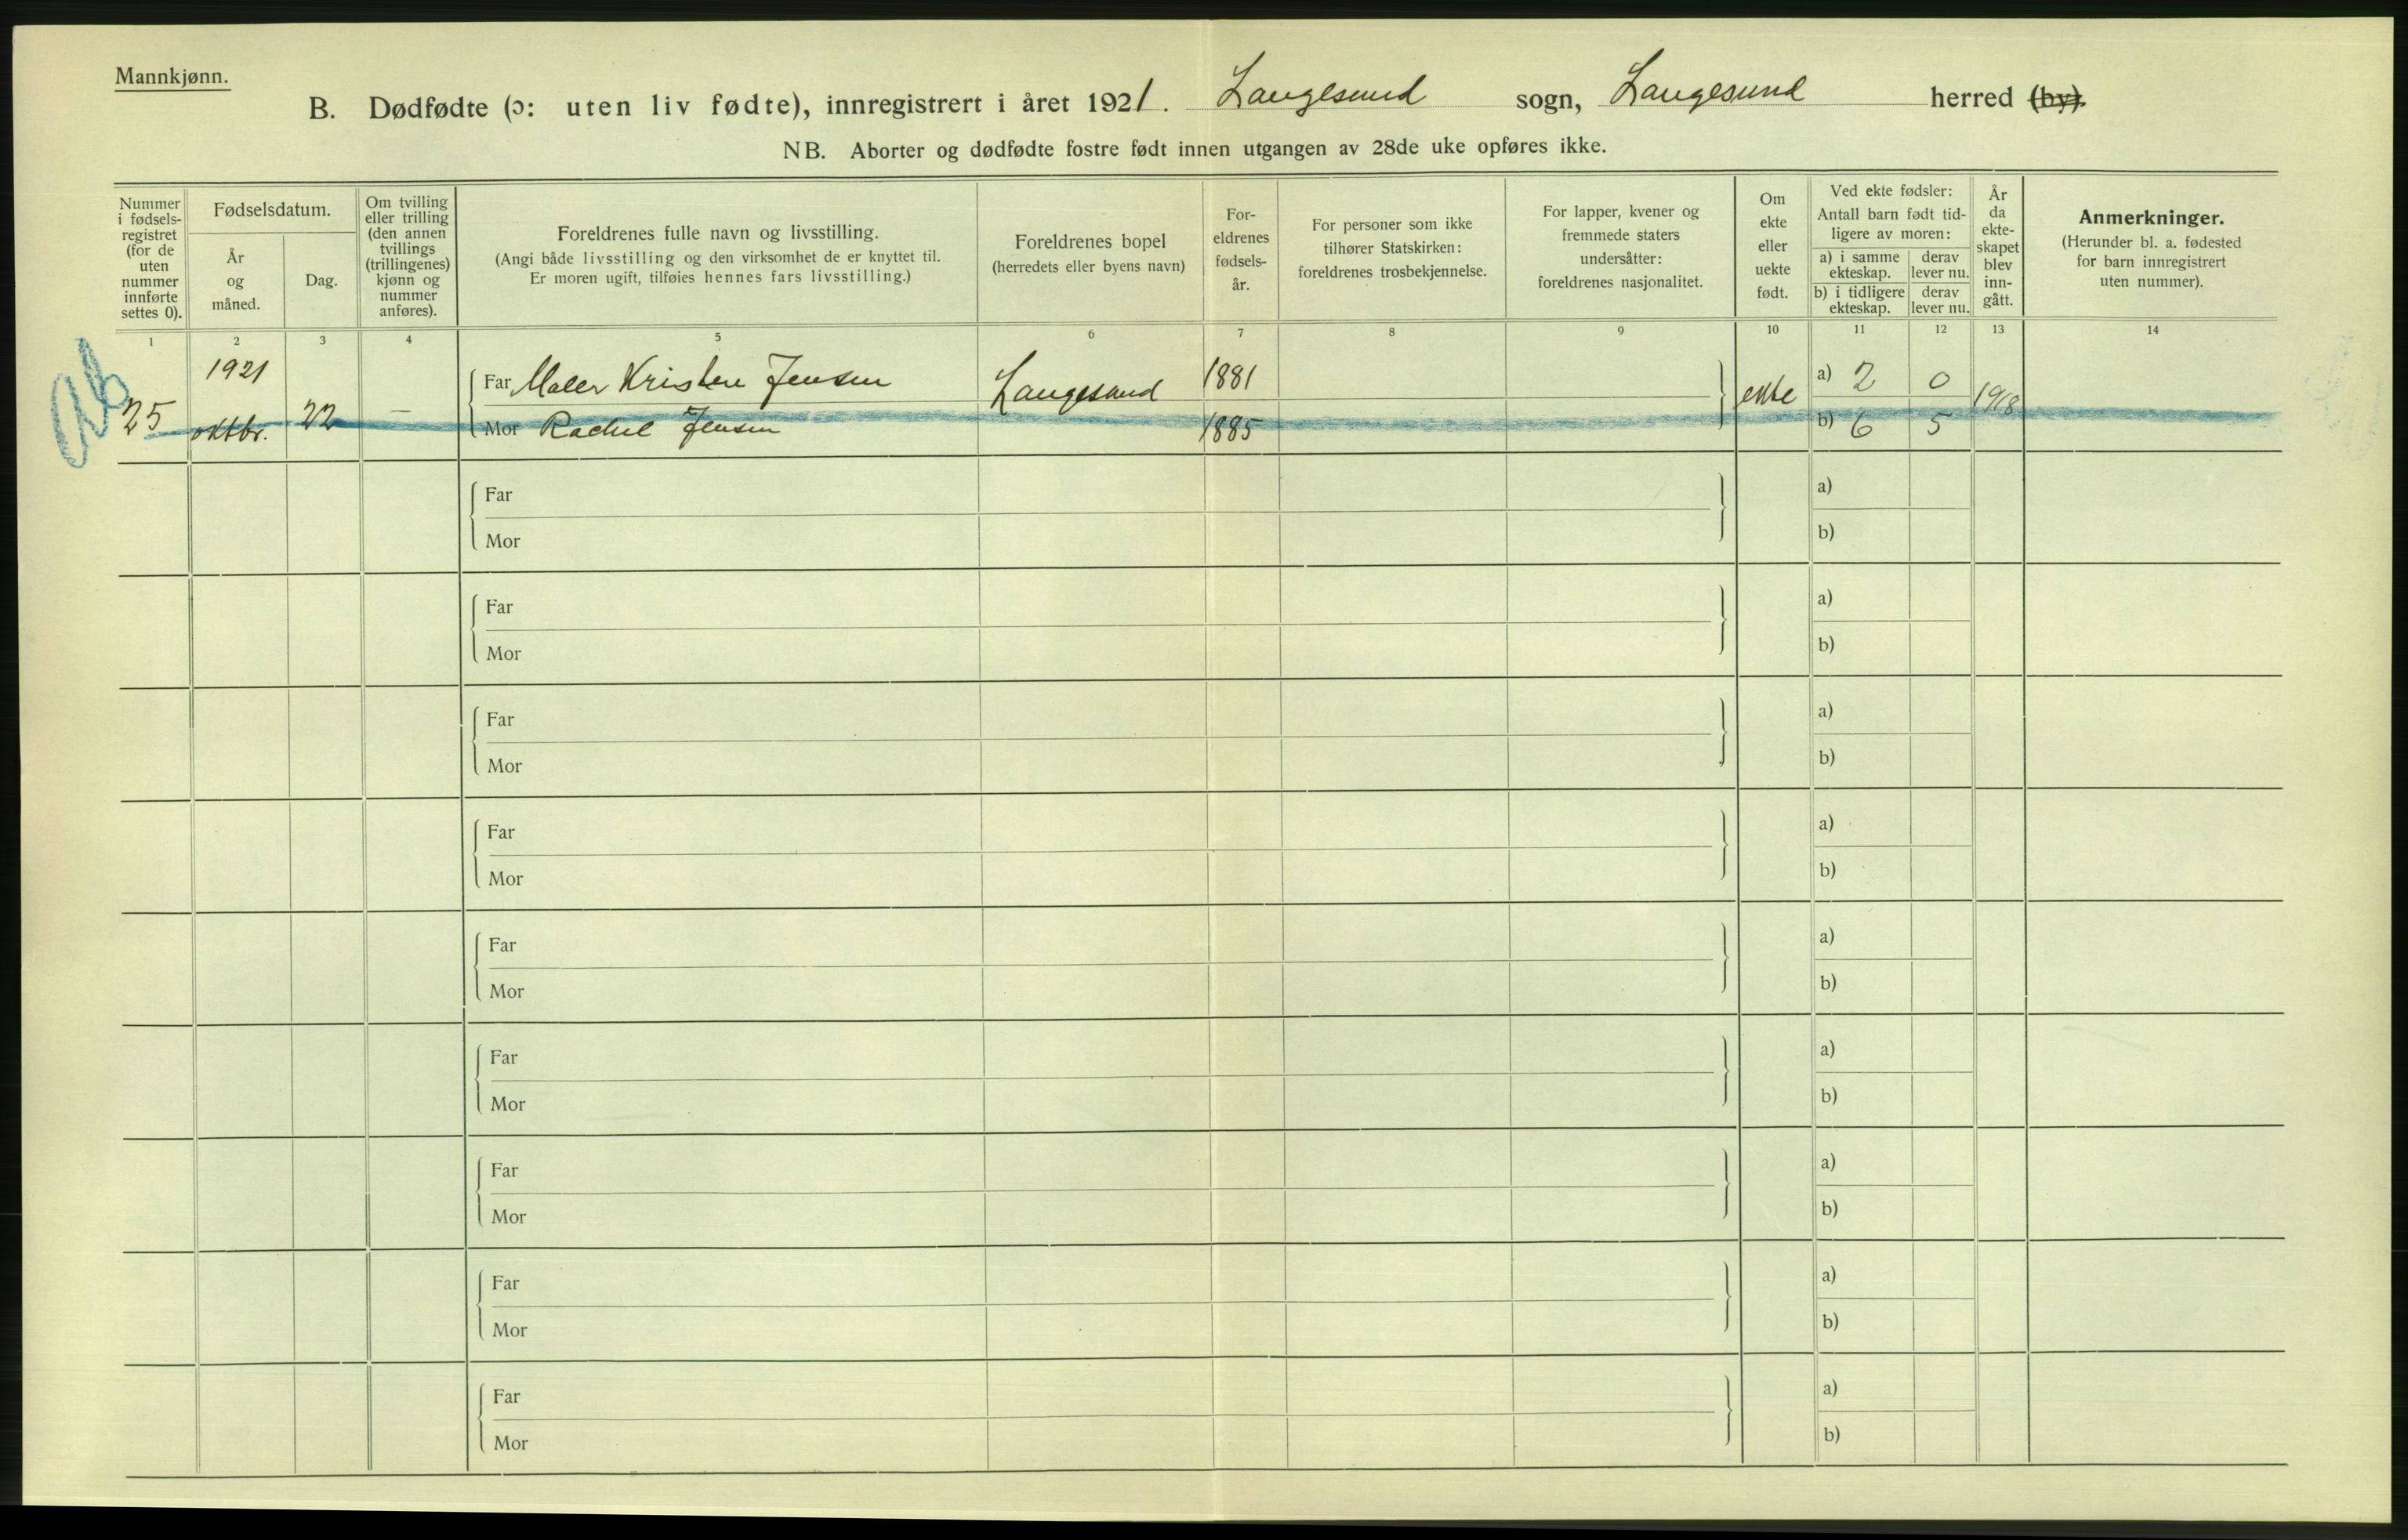 Mannkjønn.
B. Dødfødte (ɔ: uten liv fødte), innregistrert i året 1921. Langesund sogn, Langesund herred (by).
NB. Aborter og dødfødte fostre født innen utgangen av 28de uke opføres ikke.
Nummer
i fødsels-
registret
(for de
uten
nummer
innførte
settes 0).
Fødselsdatum.
År
og
måned.
Dag.
Om tvilling
eller trilling
(den annen
tvillings
(trillingenes)
kjønn og
nummer
anføres).
Foreldrenes fulle navn og livsstilling.
(Angi både livsstilling og den virksomhet de er knyttet til.
Er moren ugift, tilføies hennes fars livsstilling.)
Foreldrenes bopel
(herredets eller byens navn)
For-
eldrenes
fødsels-
år.
For personer som ikke
tilhører Statskirken:
foreldrenes trosbekjennelse.
For lapper, kvener og
fremmede staters
undersåtter:
foreldrenes nasjonalitet.
Om
ekte
eller
uekte
født.
Ved ekte fødsler:
Antall barn født tid-
ligere av moren:
a) i samme
ekteskap.
derav
lever nu.
b) i tidligere
ekteskap.
derav
lever nu.
År
da
ekte-
skapet
blev
inn-
gått.
Anmerkninger.
(Herunder bl. a. fødested
for barn innregistrert
uten nummer).
1 2 3 4 5 6 7 8 9 10 11 12 13 14
1921 Far Maler Kristen Jensen Langesund 1881 ekte a) 2 0 1918
25 oktbr. 22 – Mor Rachel Jensen 1885 b) 6 5
Far a)
Mor b)
Far a)
Mor b)
Far a)
Mor b)
Far a)
Mor b)
Far a)
Mor b)
Far a)
Mor b)
Far a)
Mor b)
Far a)
Mor b)
Far a)
Mor b)